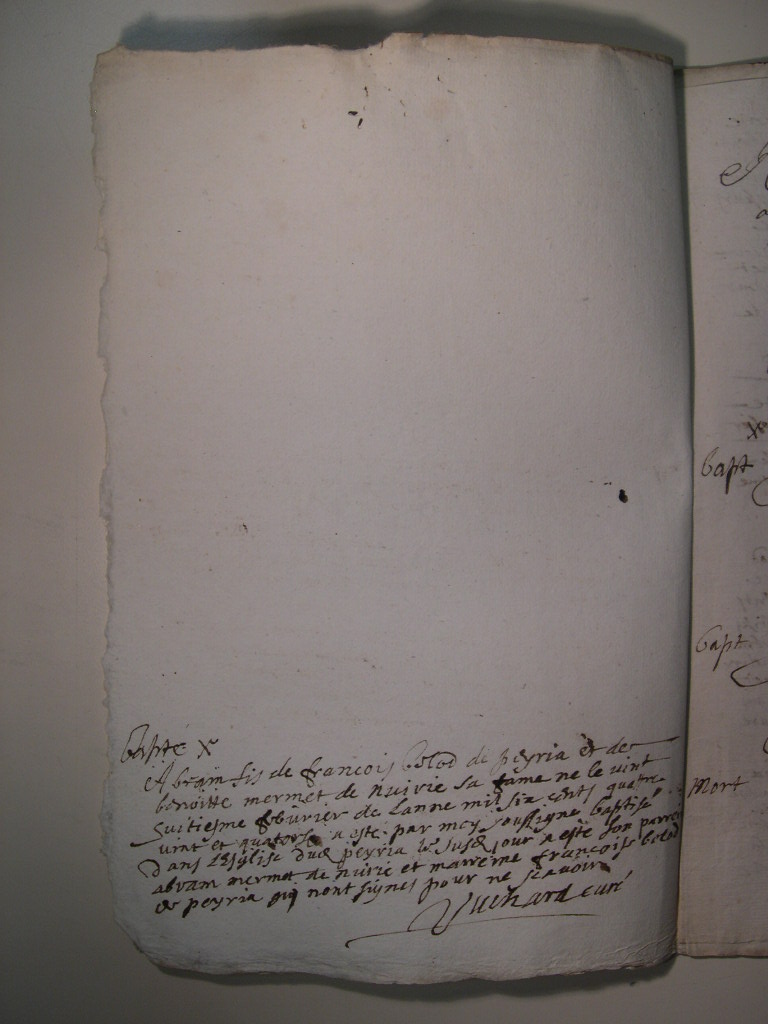 bapte X
Abram fis de francois bolod de peyria et de
benoitte mermet de nuirie sa fame ne le vint
huitiesme febvrier de lanne mil six cents quatre
vint et quatorse a este par moy soussigne baptise
dans lesglise dud peyria le susd jour a este son parrein
abram mermet de nuirie et marreine francoise bolod
de peyria qui nont signes pour ne scavoir
Vuchard curé
bapt
bapt
mort